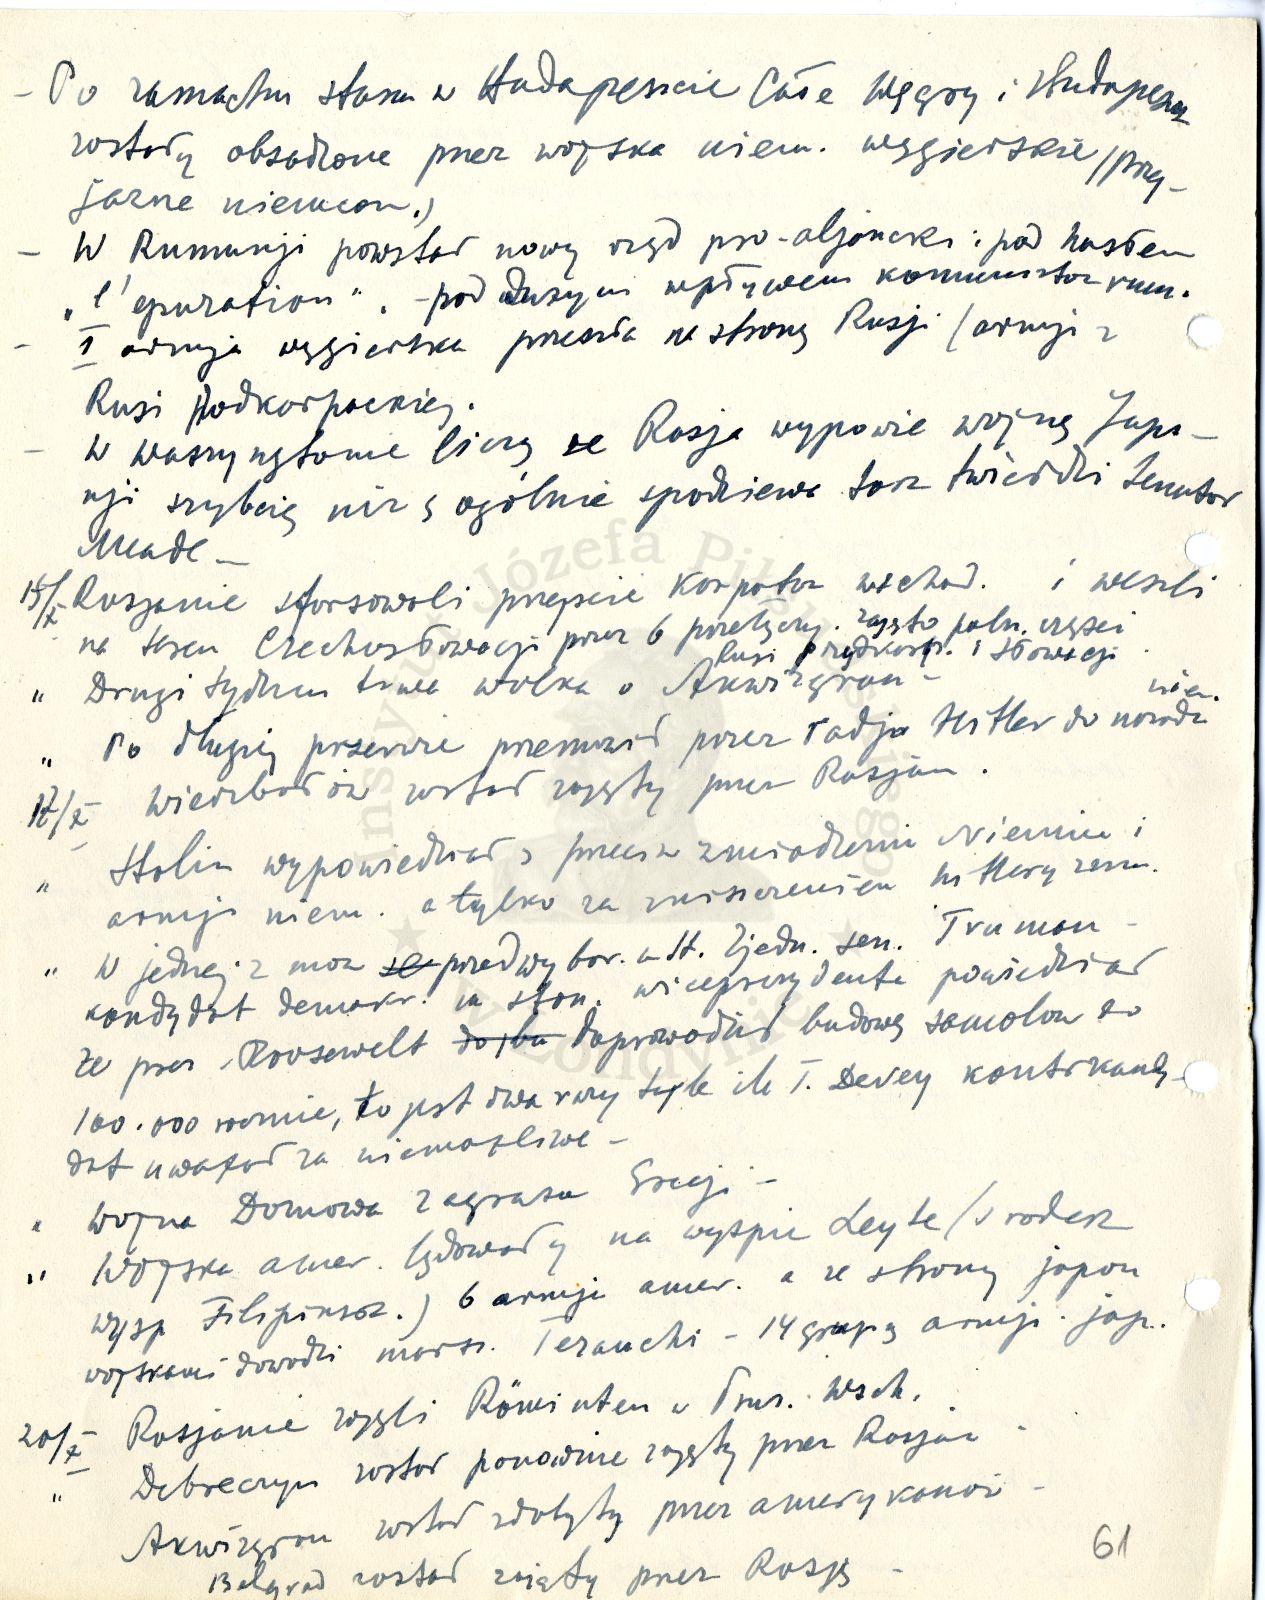 - Po zamachu stanu w Budapeszcie Całe Węgry i Budapeszt
zostały obsadzone przez wojska niem. węgierskie /przy-
jazne niemcom.)
- W Rumunji powstał nowy rząd pro-aljancki i pod hasłem
"l'epuration". - pod dużym wpływem komunistów rum.
- I armja węgierska przeszła na stronę Rosji (armji z
Rusi Podkarpackiej.
- W Waszyngtonie liczą że Rosja wypowie wojnę Japo-
nji szybciej niż ogólnie spodziewa twierdzi Senator
Meade -
15/X Rosjanie sforsowali przejście Karpatów wschod. i weszli
na teren Czechosłowacji przez 6 przełęczy. zajęto półn. części
Rusi i Słowacji
" Drugi tydzień trwa walka o Akwizgran -
niem.
" Po długiej przerwie przemówił przez radjo Hitler do narodu
17/X Wierzbołów został zajęty przez Rosjan.
" Stalin wypowiedział przeciw zmiażdżeniu Niemiec i
armji niem. a tylko za zniszczeniem hitleryzmu.
" W jednej z mów przedwybor. w St. Zjedn. sen. Truman -
kandydat demokr. na stan. wiceprezydenta powiedział
że prez. Roosewelt doprowadził budowę samolotów do
100.000 rocznie, to jest dwa razy tyle ile T. Devey kontrkandy-
dat uważał za niemożliwe -
" Wojna Domowa zagraża Grecji -
" Wojska amer. lądowały na wyspie Leyte /środek
wysp Filipińsk.) 6 armja amer. a ze strony japoń
wojskami dowodzi marsz. Terauchi - 14 grupą armji. jap.
20/X Rosjanie zajęli Röminten w Prus. Wsch.
" Debreczyn został ponownie zajęty przez Rosjan -
Akwizgran został zdobyty przez amerykanów -
Belgrad został zajęty przez Rosję -
61
Instytut Józefa Piłsudskiego
w Londynie